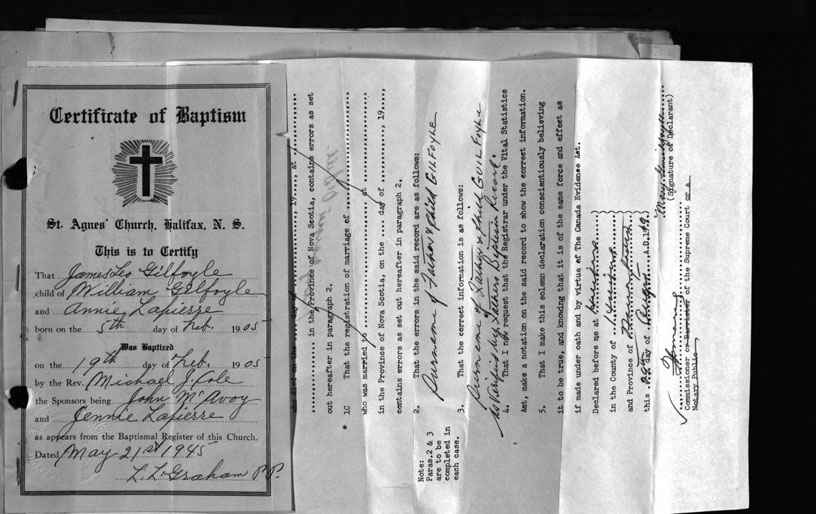 Certificate of Baptism
St. Agnes' Church, Halifax, N. S.
This is to Certify
That James Leo Gilfoyle
child of William Gilfoyle
and Annie Lapierre
born on the 5th day of Feb. 1905
Was Baptized
on the 19th day of Feb. 1905
by the Rev. Michael J. Cole
the Sponsors being John McAvoy
and Jennie Lapierre
as appears from the Baptismal Register of this Church.
Dated May 21st 1945
L. L. Graham P.P.
19 at
in the Province of Nova Scotia, contains errors as set
out hereafter in paragraph 2.
* 1C That the registration of marriage of
who was married to at
in the Province of Nova Scotia, on the day of 19
contains errors as set out hereafter in paragraph 2.
Note:
Paras. 2 & 3
are to be
completed in
each case.
2. That the errors in the said record are as follows:
Surname of Father & Child GILFOYLE
3. That the correct information is as follows:
Surname of Father & Child GUILFOYLE
As Verified by Fathers Baptism Record.
4. That I now request that the Registrar under the Vital Statistics
Act, make a notation on the said record to show the correct information.
5. That I make this solemn declaration conscientiously believing
it to be true, and knowing that it is of the same force and effect as
if made under oath and by virtue of The Canada Evidence Act.
Declared before me at
in the County of
and Province of
this day of A.D. 19
Mary
(Signature of Declarant)
Commissioner or Barrister of the Supreme Court or a
Notary Public